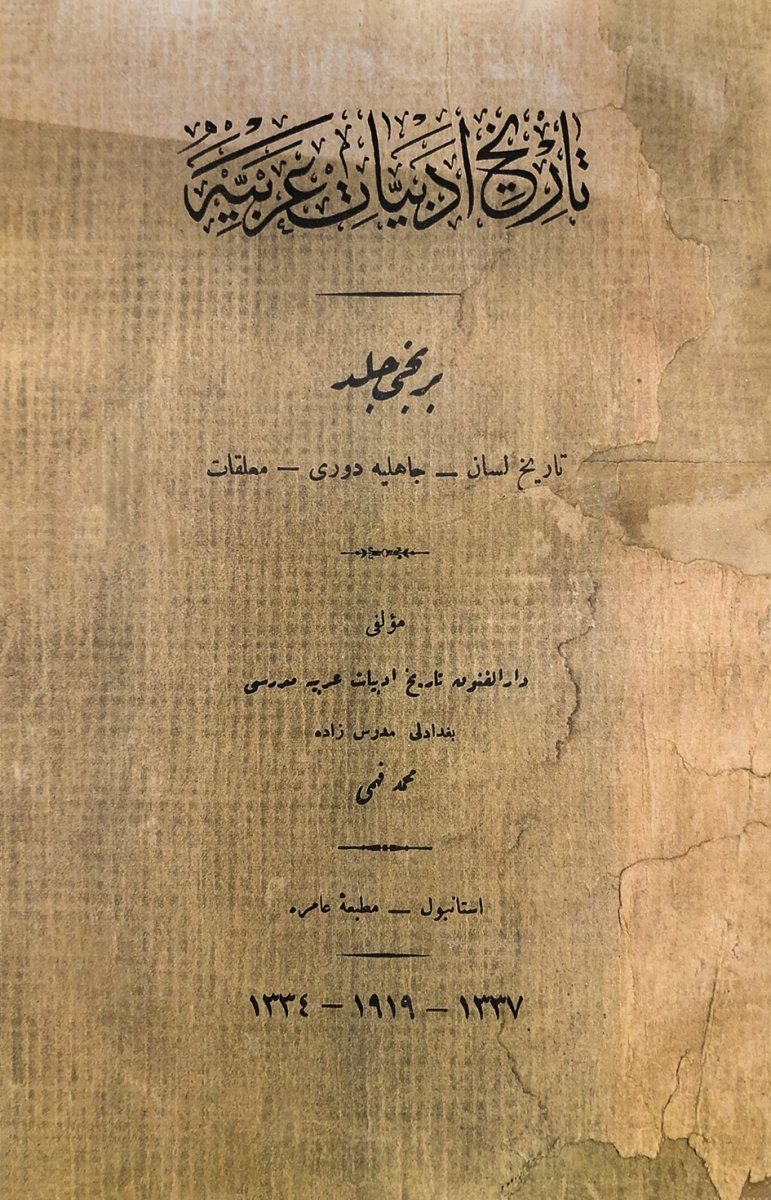 تاریخ ادبیات عربیه
برنجی جلد
تاریخ لسان — جاهلیه دوری — معلقات
مؤلفی
دارالفنون تاریخ ادبیات عربیه مدرسی
بغدادلی مدرس زاده
محمد فهمی
استانبول — مطبعهٔ عامره
١٣٣٧ — ١٩١٩ — ١٣٣٤